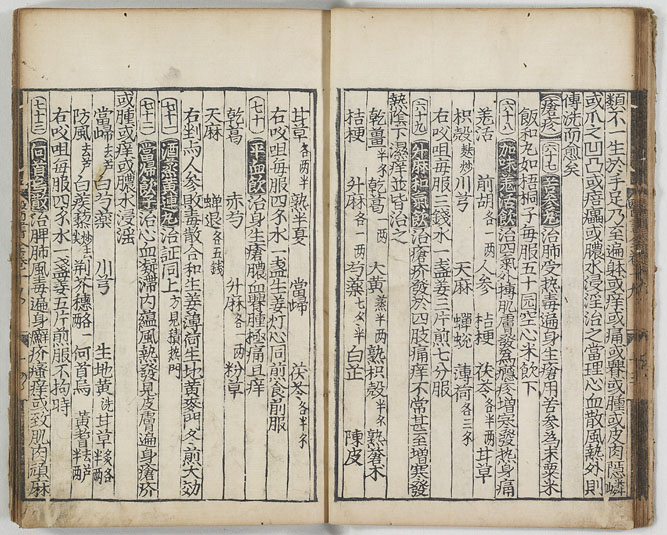 類不一生於手足乃至遍躰或痒或痛或腫或皮肉隱嶙
或爪之凹凸或瘖㿔或膿水浸淫治之當理心血散風熱外則
傅洗而愈矣
瘡疹 六十七 苦參丸 治肺受熱毒遍身生瘡用苦參為末粟米
飯和丸如梧桐子毎服五十囘空心米飲下
六十八 加味羌活飲 治四氣外搏肌膚發為癮疹增寒發熱身痛
羌活 前胡各一兩 人參 桔梗 茯苓各半兩 甘草
枳殼麩炒 川芎 天麻 蟬蛻 薄荷各三錢
右㕮咀毎服三錢水一盞姜三片煎七分服
六十九 升麻和氣飲 治瘡疥發於四肢痛痒不常甚至增寒發
熱陰下濕痒並皆治之
乾薑半錢 乾葛一兩 大黃蒸半兩 熟枳殼半錢 熟蒼朮
桔梗 升麻各一兩 芍薬七錢半 白芷 陳皮
甘草各兩半 熟半夏 當歸 茯苓各半錢
右㕮咀毎服四錢水一盞生姜灯心同煎食前服
七十 平血飲 治身生瘡膿血腫極痛且痒
乾葛 赤芍 升麻各一兩 粉草
天麻 蟬退各五錢
右剉為人參敗毒散合和生姜薄荷生地黃麥門冬煎大効
七十一 酒蒸黃連丸 治証同上方見積熱門
七十二 當歸飲子 治心血凝滯内蘊風熱發見皮膚遍身瘡疥
或腫或痒或膿水浸淫
當歸去芦 白芍薬 川芎 生地黃洗 甘草炙各半兩
防風去芦 白蒺藜炒去 荊芥穗各一 何首烏 黃耆去芦半兩
右㕮咀毎服四錢水一盞姜五片煎服不拘時
七十三 何首烏散 治脾肺風毒遍身癬疥瘙痒或致肌肉頑麻